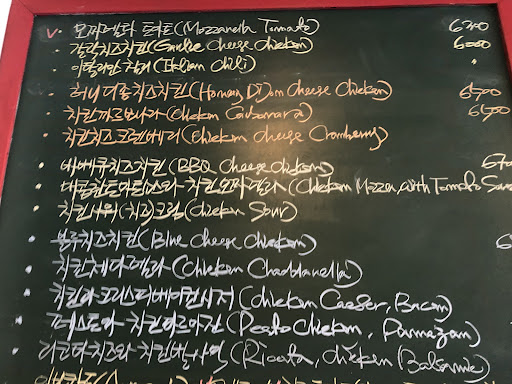 v · 모짜렐라 토마토 (Mozzarella Tomato) 6300
· 갈릭치즈치킨 (Garlic Cheese Chicken) 6000
· 이탈리안 칠리 (Italian Chili) "
· 허니 디종치즈치킨 (Honey Dijon Cheese Chicken) 6500
· 치킨까르보나라 (Chicken Carbonara) 6500
· 치킨치즈크랜베리 (Chicken cheese Cranberry)
· 바베큐치즈치킨 (BBQ Cheese chicken) 670
· 치킨 모짜렐라 (Chicken Mozza, with Tomato Sauce
· 치킨사워(치킨)크림 (Chicken Sour)
· 블루치즈치킨 (Blue Cheese Chicken) 6
· 치킨체다넬라 (Chicken Chaddanella)
· 치킨과크리스피베이컨시저 (Chicken Caeser, Bacon)
· 페스토와 치킨파르마잔 (Pesto Chicken, Parmazan)
· 리코타치즈와 치킨발사믹 (Ricotta, chicken Balsamic)